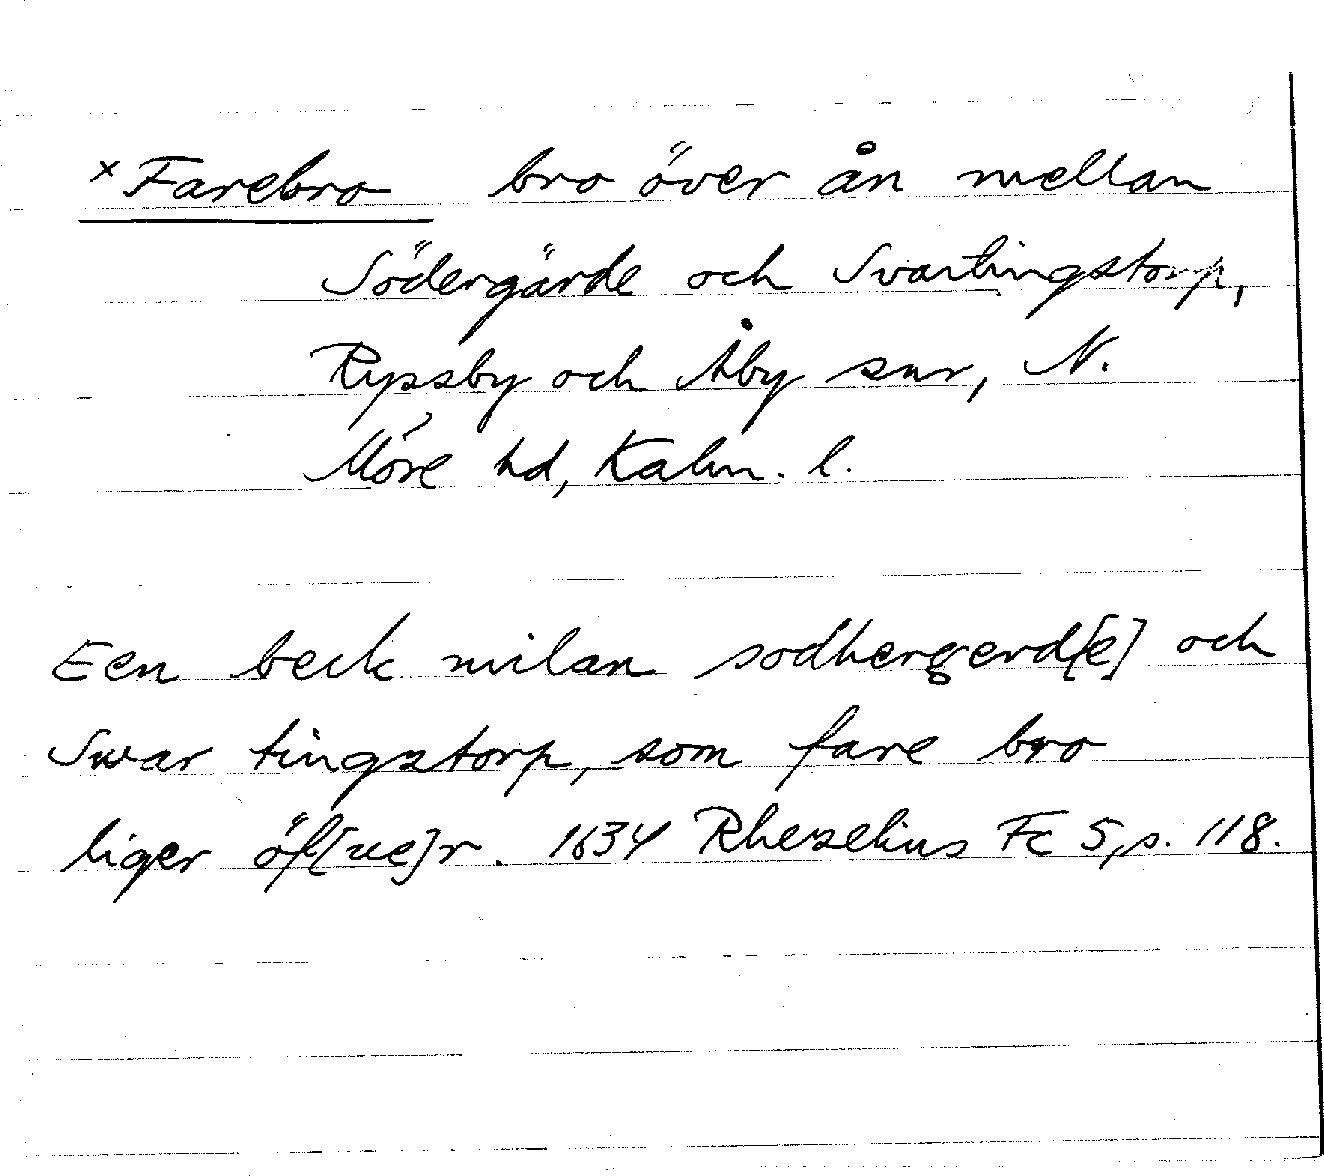 x Farebro bro över ån mellan
Södergärde och Svartingstorp,
Ryssby och Åby snr, N.
Möre hd, Kalm. l.
Een beck milan sodhergerd[e] och
Swar tingstorp, som fare bro
liger öf[ue]r. 1634 Rhezelius Fc 5, s. 118.